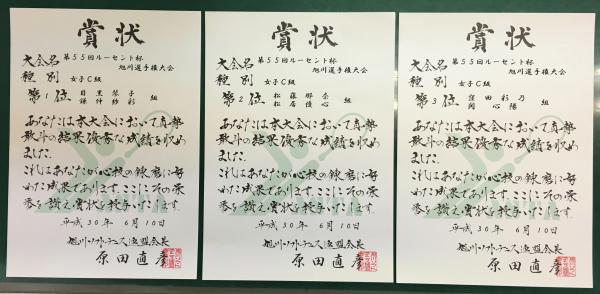 賞状
大会名 第55回ルーセント杯
旭川選手権大会
種別 女子C級
第1位 目黒琴子
鎌仲紗彩 組
あなたは本大会において真摯
敢斗の結果優秀な成績を収め
ました
これはあなたが心技の錬磨に努
めた成果であります ここにその栄
誉を讃え賞状を授与いたします
平成30年6月10日
旭川ソフトテニス連盟会長
原田直彦
賞状
大会名 第55回ルーセント杯
旭川選手権大会
種別 女子C級
第2位 松藤那奈
松居優心 組
あなたは本大会において真摯
敢斗の結果優秀な成績を収め
ました
これはあなたが心技の錬磨に努
めた成果であります ここにその栄
誉を讃え賞状を授与いたします
平成30年6月10日
旭川ソフトテニス連盟会長
原田直彦
賞状
大会名 第55回ルーセント杯
旭川選手権大会
種別 女子C級
第3位 窪田彩乃
岡心陽 組
あなたは本大会において真摯
敢斗の結果優秀な成績を収め
ました
これはあなたが心技の錬磨に努
めた成果であります ここにその栄
誉を讃え賞状を授与いたします
平成30年6月10日
旭川ソフトテニス連盟会長
原田直彦